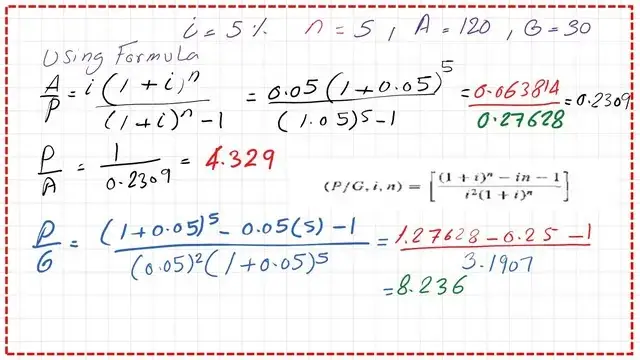 i = 5% n = 5 , A = 120 , G = 30
Using Formula
A/P = i(1+i)^n / (1+i)^n - 1 = 0.05(1+0.05)^5 / (1.05)^5 - 1 = 0.063814 / 0.27628 = 0.2309
P/A = 1 / 0.2309 = 4.329
(P/G, i, n) = [(1 + i)^n − in − 1 / i^2(1 + i)^n]
P/G = (1+0.05)^5 - 0.05(5) - 1 / (0.05)^2(1+0.05)^5 = 1.27628 - 0.25 - 1 / 3.1907
= 8.236